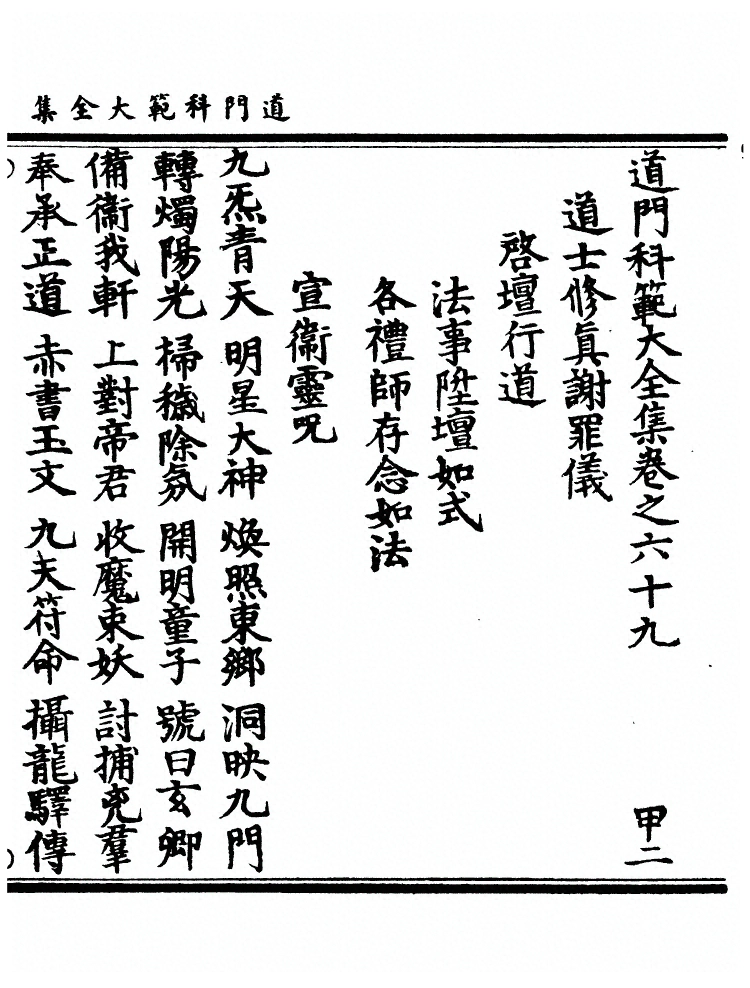 道門科範大全集
道門科範大全集卷之六十九　甲二
道士修真謝罪儀
啓壇行道
法事陞壇如式
各禮師存念如法
宣衞靈呪
九炁青天　明星大神　煥照東鄉　洞映九門
轉燭陽光　掃穢除氛　開明童子　號曰玄卿
備衞我軒　上對帝君　收魔束妖　討捕兇羣
奉承正道　赤書玉文　九天符命　攝龍驛傳